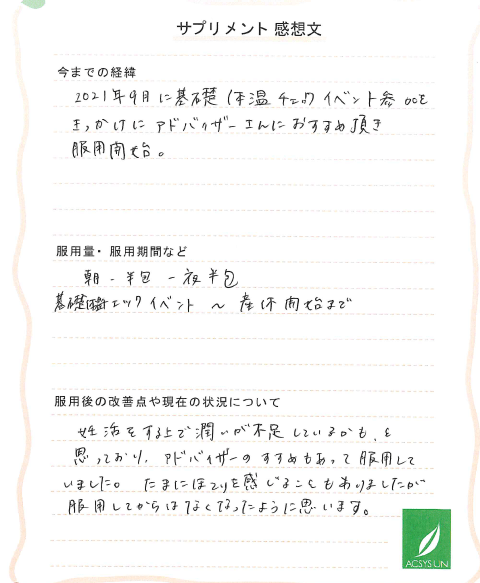 サプリメント 感想文
今までの経緯
2021年9月に基礎体温チェックイベント参加を
きっかけにアドバイザーさんにおすすめ頂き
服用開始。
服用量・服用期間など
朝-半包 -夜半包
基礎体温チェックイベント 〜 産休開始まで
服用後の改善点や現在の状況について
妊活をする上で潤いが不足しているかも、と
思っており、アドバイザーのすすめもあって服用して
いました。たまにほてりを感じることもありましたが
服用してからはなくなったように思います。
ACSYS・UN